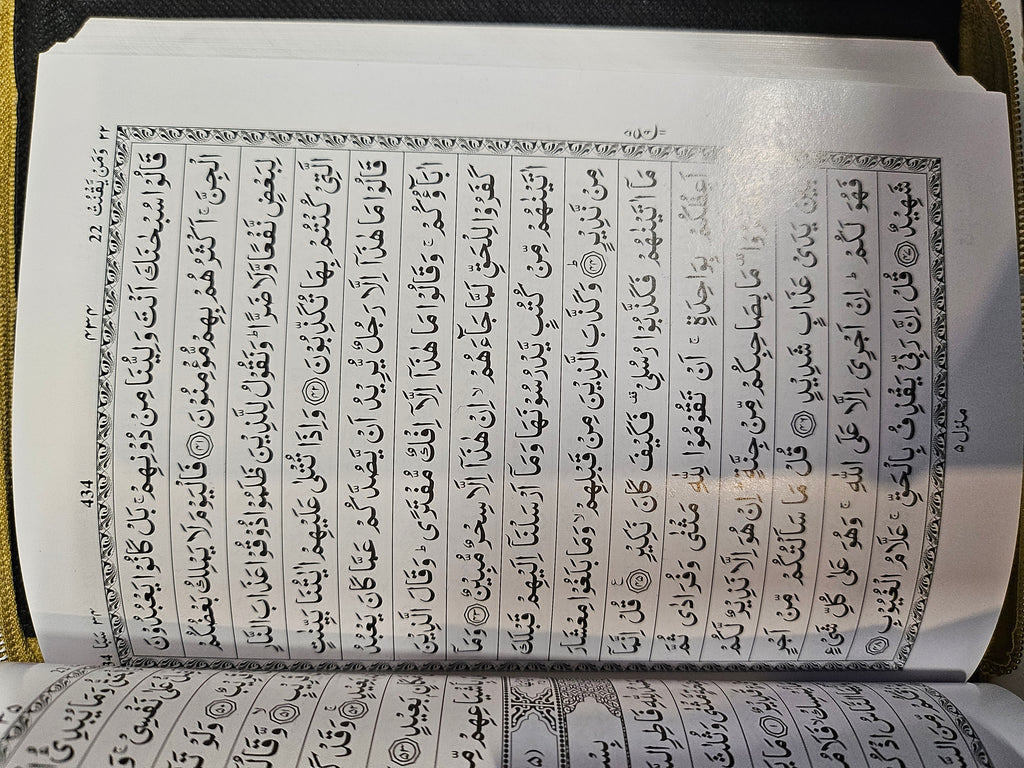 وَمَنْ يَّقْنُتْ ٢٢ 22
۴۳۴ 434
سَبَا ٣٤ 34
قَالُوْا سُبْحٰنَكَ اَنْتَ وَلِيُّنَا مِنْ دُوْنِهِمْ ۚ بَلْ كَانُوْا يَعْبُدُوْنَ
الْجِنَّ ۚ اَكْثَرُهُمْ بِهِمْ مُّؤْمِنُوْنَ ﴿۴۱﴾ فَالْيَوْمَ لَا يَمْلِكُ بَعْضُكُمْ
لِبَعْضٍ نَّفْعًا وَّلَا ضَرًّا ؕ وَنَقُوْلُ لِلَّذِيْنَ ظَلَمُوْا ذُوْقُوْا عَذَابَ النَّارِ
الَّتِيْ كُنْتُمْ بِهَا تُكَذِّبُوْنَ ﴿۴۲﴾ وَاِذَا تُتْلٰى عَلَيْهِمْ اٰيٰتُنَا بَيِّنٰتٍ
قَالُوْا مَا هٰذَاۤ اِلَّا رَجُلٌ يُّرِيْدُ اَنْ يَّصُدَّكُمْ عَمَّا كَانَ يَعْبُدُ
اٰبَآؤُكُمْ ۚ وَقَالُوْا مَا هٰذَاۤ اِلَّاۤ اِفْكٌ مُّفْتَرًى ؕ وَقَالَ الَّذِيْنَ
كَفَرُوْا لِلْحَقِّ لَمَّا جَآءَهُمْ ۙ اِنْ هٰذَاۤ اِلَّا سِحْرٌ مُّبِيْنٌ ﴿۴۳﴾ وَمَاۤ
اٰتَيْنٰهُمْ مِّنْ كُتُبٍ يَّدْرُسُوْنَهَا وَمَاۤ اَرْسَلْنَاۤ اِلَيْهِمْ قَبْلَكَ
مِنْ نَّذِيْرٍ ﴿۴۴﴾ ؕ وَكَذَّبَ الَّذِيْنَ مِنْ قَبْلِهِمْ ۙ وَمَا بَلَغُوْا مِعْشَارَ
مَاۤ اٰتَيْنٰهُمْ فَكَذَّبُوْا رُسُلِيْ ۫ فَكَيْفَ كَانَ نَكِيْرِ ﴿۴۵﴾ قُلْ اِنَّمَاۤ
اَعِظُكُمْ بِوَاحِدَةٍ ۚ اَنْ تَقُوْمُوْا لِلّٰهِ مَثْنٰى وَفُرَادٰى ثُمَّ
مَا بِصَاحِبِكُمْ مِّنْ جِنَّةٍ ؕ اِنْ هُوَ اِلَّا نَذِيْرٌ لَّكُمْ
بَيْنَ يَدَيْ عَذَابٍ شَدِيْدٍ ﴿۴۶﴾ قُلْ مَا سَاَلْتُكُمْ مِّنْ اَجْرٍ
فَهُوَ لَكُمْ ؕ اِنْ اَجْرِيَ اِلَّا عَلَى اللّٰهِ ۚ وَهُوَ عَلٰى كُلِّ شَيْءٍ
شَهِيْدٌ ﴿۴۷﴾ قُلْ اِنَّ رَبِّيْ يَقْذِفُ بِالْحَقِّ ۚ عَلَّامُ الْغُيُوْبِ ﴿۴۸﴾
منزل ۵